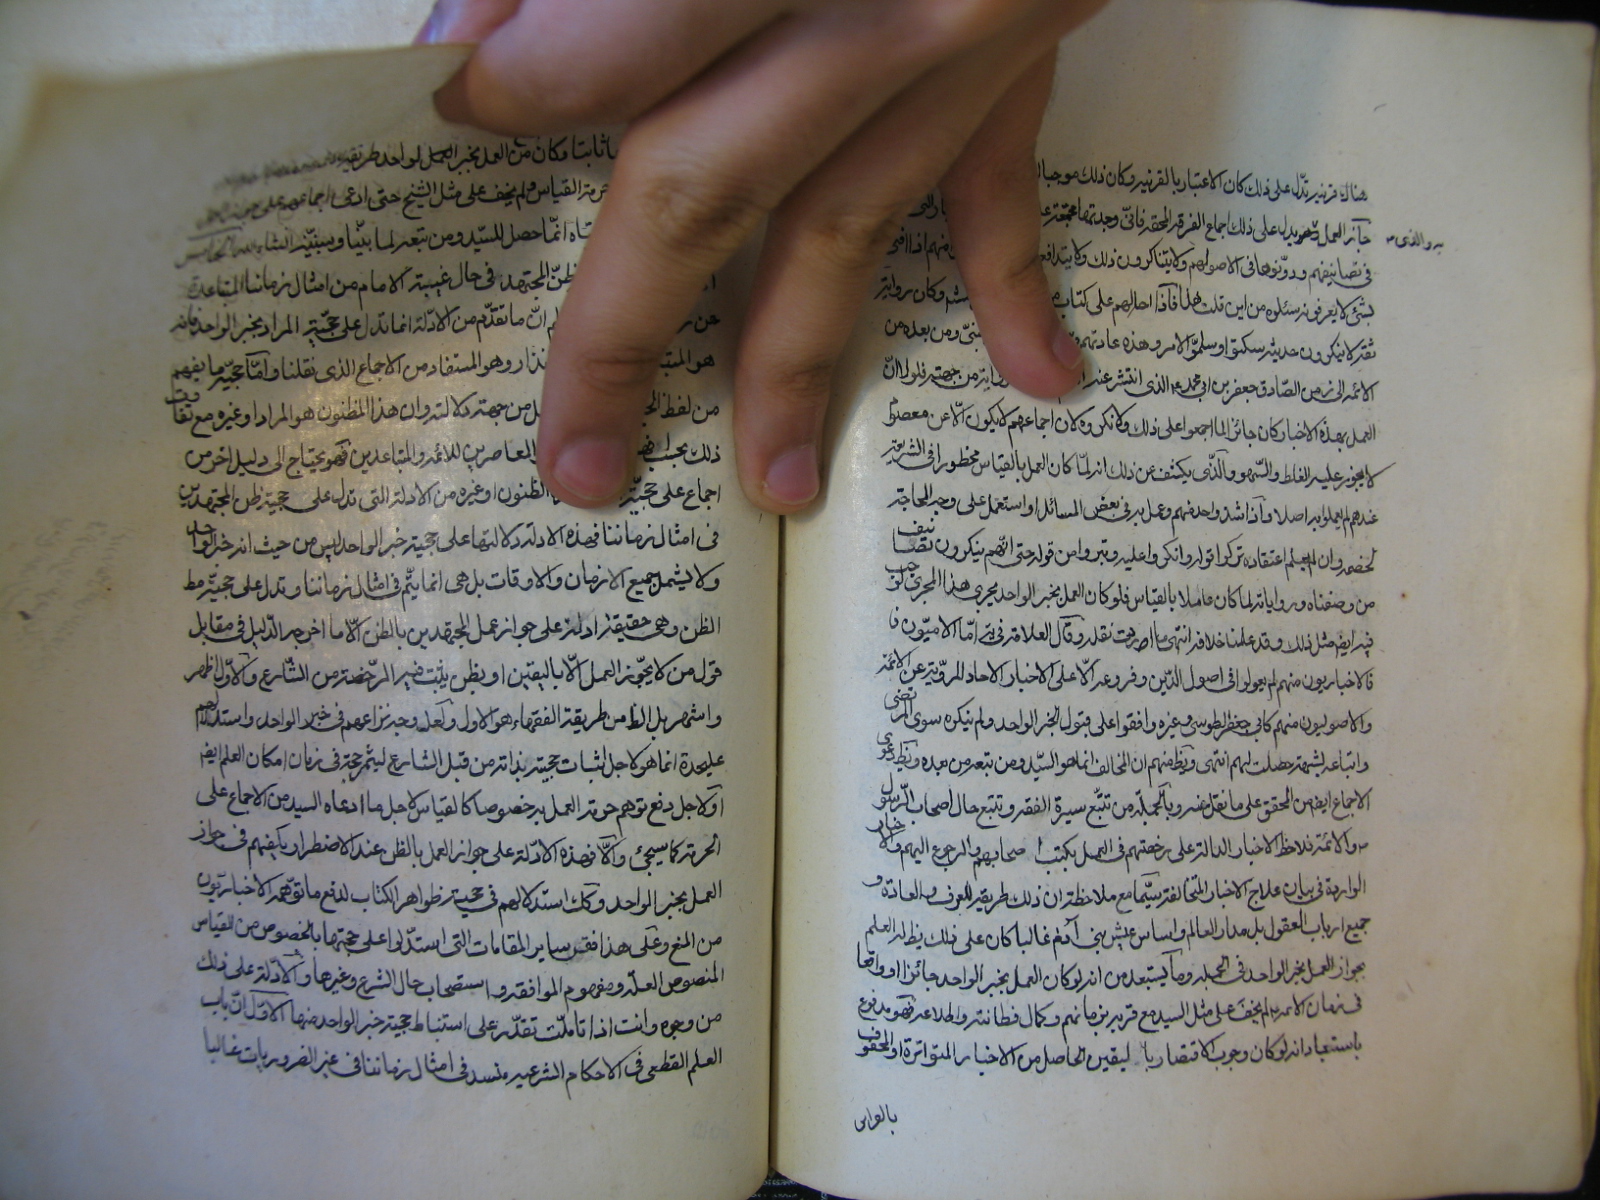 هناك قرينة تدل على ذلك كان الاعتبار بالقرينة وكان ذلك موجبا
جاز العمل به ويدل على ذلك اجماع الفرقة المحقة فانى وجدتها مجتمعة
به والذى
فى تصانيفهم ودونوها فى اصولهم ولا يتناكرون ذلك ولا يتدافعون منهم اذا افتى
بشئ لا يعرفونه سئلوه من اين قلت هذا فاذا احالهم على كتاب وكان روايته
ثقة لا ينكرون حديثه سكتوا وسلموا الامر وهذه عادتهم النبى ومن بعده من
الائمة الى زمن الصادق جعفر بن محمد الذى انتشر عنه من جهته فلولا ان
العمل بهذه الاخبار كان جائزا لما اجمعوا على ذلك ولانكروه لان اجماعهم لا يكون الا عن معصوم
لا يجوز عليه الغلط والسهو والذى يكشف عن ذلك انه لما كان العمل بالقياس محظورا فى الشريعة
عندهم لم يعملوا به اصلا واذا شذ واحد منهم وعمل به فى بعض المسائل او استعمل على وجه المحاجة
لخصمه وان لم يعلم اعتقاده تركوا قوله وانكروا عليه وتبروا من قوله حتى انهم ينكرون تصانيف
من وصفناه ورواياته لما كان عاملا بالقياس فلو كان العمل بخبر الواحد يجرى هذا المجرى لوجب
فيه ايض مثل ذلك وقد علمنا خلافه انتهى ما اردت نقله وقال العلامة فى اما الاماميون
فالاخباريون منهم لم يعولوا فى اصول الدين وفروعه الا على الاخبار الاحاد المروية عن الائمة
والاصوليون منهم كابى جعفر الطوسى وغيره وافقوا على قبول الخبر الواحد ولم ينكره سوى المرتضى
واتباعه لشبهة حصلت لهم انتهى ويظ منهم ان المخالف انما هو السيد ومن تبعه من بعده ويظ دعوى
الاجماع ايض من المحقق على ما نقل عنه وبالجملة من تتبع سيرة الفقه وتتبع حال اصحاب الرسول
والائمة ولاحظ الاخبار الدالة على رخصتهم فى العمل بكتب اصحابهم والرجوع اليهم والاخبار
الواردة فى بيان علاج الاخبار المتخالفة سيما مع ملاحظة ان ذلك طريقة العرف والعادة و
جميع ارباب العقول بل مدار العالم واساس عيش بنى آدم غالبا كان على ذلك يظهر له العلم
بجواز العمل بخبر الواحد فى الجملة وما يستبعد من انه لو كان العمل بخبر الواحد جائزا او واقعا
فى زمان الائمة لم يخف على مثل السيد مع قربه بزمانهم وكمال فطانته واطلاعه فهو مدفوع
باستبعاد انه لو كان وجوب الاقتصار باليقين الحاصل من الاخبار المتواترة او المحفوف
بالقراين
ثابتا وكان من العمل بخبر الواحد طريقة
حرمة القياس لم يخف على مثل الشيخ حتى ادعى اجماعهم على
انما حصل للسيد ومن تبعه لما بينا وسنبينه انشاء الله الخامس
ظن المجتهد فى حال غيبة الامام من امثال زماننا المتباعدة
عن ان ما تقدم من الادلة انما تدل على حجية المراد بخبر الواحد فانه
هو وهو المستفاد من الاجماع الذى نقلنا واما حجية ما يفهم
من لفظ من جهة دلالته وان هذا المظنون هو المراد او غيره مع تفاوت
ذلك بحسب المعاصرين للائمة والمتباعدين فهو يحتاج الى دليل اخر من
اجماع على حجية الظنون او غيره من الادلة التى تدل على حجية ظن المجتهدين
فى امثال زماننا فهذه الادلة دلالتها على حجية خبر الواحد ليس من حيث انه خبر الواحد
ولا يشمل جميع الازمان والاوقات بل هى انما يتم فى امثال زماننا وتدل على حجية مط
الظن وهى حقيقة ادلة على جواز عمل المجتهدين بالظن الا ما اخرجه الدليل فى مقابل
قول من لا يجوز العمل الا باليقين او بظن يثبت فيه الرخصة من الشارع والاول اظهر
واشهر بل الظ من طريقة الفقهاء هو الاول ولعل وجه نزاعهم فى خبر الواحد واستدلالهم
عليحدة انما هو لاجل اثبات حجيته بذاته من قبل الشارع ليثمر حجة فى زمان امكان العلم ايض
او لاجل دفع توهم حرمة العمل به خصوصا كالقياس لاجل ما ادعاه السيد من الاجماع على
الحرمة كما سيجئ والا فهذه الادلة على جواز العمل بالظن عند الاضطرار يكفيهم فى جواز
العمل بخبر الواحد وكك استدلالهم فى حجية ظواهر الكتاب لدفع ما توهمه الاخباريون
من المنع وعلى هذا فقس ساير المقامات التى استدلوا على حجيتها بالخصوص من القياس
المنصوص العلة ومفهوم الموافقة واستصحاب حال الشرع وغيرها والادلة على ذلك
من وجوه وانت اذا تاملت تقدر على استنباط حجية خبر الواحد منها الاول ان باب
العلم القطعى فى الاحكام الشرعية منسد فى امثال زماننا فى غير الضروريات غالبا